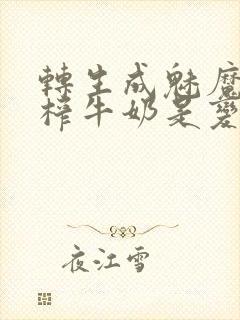 轉生成魅魔
榨牛奶是變
夜江雪